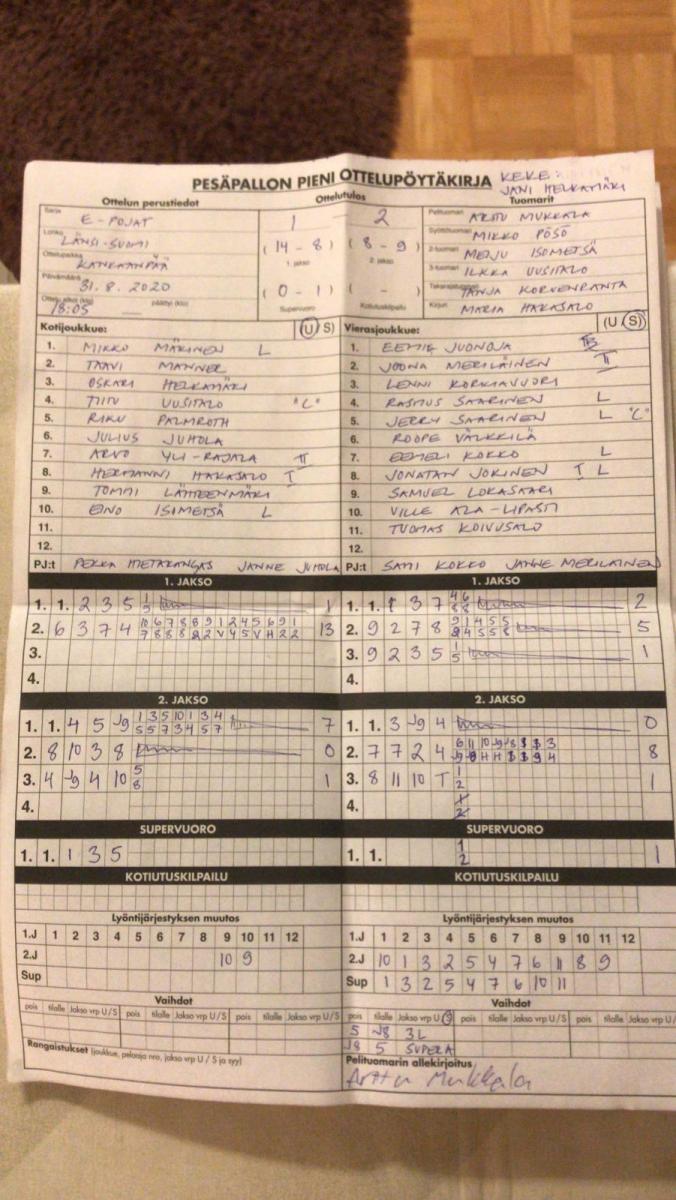 PESÄPALLON PIENI OTTELUPÖYTÄKIRJA KEKE:
JANI HELKAMÄKI
Ottelun perustiedot Ottelutulos Tuomarit
Sarja E-POJAT 1 2 Pelituomari ARTTU MUKKALA
Lohko LÄNSI-SUOMI (14-8) (8-9) Syöttötuomari MIKKO PÖSÖ
1. jakso 2. jakso
Ottelupaikka KANKAANPÄÄ 2-tuomari MERJU ISOMETSÄ
Päivämäärä 31.8.2020 (0-1) ( - ) 3-tuomari ILKKA UUSITALO
Supervuoro Kotiutuskilpailu
Ottelu alkoi (klo) 18:05 päättyi (klo) Takarajatuomari TANJA KORVENRANTA
Kirjuri MARIA HAKASALO
Kotijoukkue: (U S) Vierasjoukkue: (U S)
1. MIKKO MÄKINEN L 1. EEMIL JUONOJA
2. TAAVI MANNER 2. JOONA MERILÄINEN II
3. OSKARI HELKAMÄKI 3. LENNI KORKIAVUORI
4. UUSITALO "C" 4. RASMUS SAARINEN L
5. RIKU PALMROTH 5. JERRY SAARINEN L "C"
6. JULIUS JUHOLA 6. ROOPE VÄLKKILÄ
7. ARVO YLI-RAJALA II 7. EEMELI KOKKO L
8. HERMANNI HAKASALO I 8. JONATAN JOKINEN I L
9. TOMMI LÄHTEENMÄKI 9. SAMUEL LOKASAARI
10. EINO ISOMETSÄ L 10. VILLE ALA-LIPASTI
11. 11. TUOMAS KOIVUSALO
12. 12.
PJ:t PEKKA METAKANGAS JANNE JUHOLA PJ:t SAMI KOKKO JANNE MERILÄINEN
1. JAKSO 1. JAKSO
1. 1. 2 3 5 1 1. 1. 1 3 7 4 6 2
5 8 8
2. 6 3 7 4 10 6 7 8 8 9 1 2 4 5 6 9 1 13 2. 9 2 7 8 9 1 4 5 5 5
7 8 8 8 2 2 V 4 5 V H 2 2 2 4 5 5 8
3. 3. 9 2 3 5 1 1
5
4. 4.
2. JAKSO 2. JAKSO
1. 1. 4 5 J9 1 3 5 10 1 3 4 7 1. 1. 3 J9 4 0
5 5 7 3 4 5 7
2. 8 10 3 8 0 2. 7 7 2 4 6 11 10 J9 J8 3 8
3. 4 J9 4 10 5 1 3. 8 11 10 T 1 1
8 2
4. 4.
SUPERVUORO SUPERVUORO
1. 1. 1 3 5 1. 1. 1 1
2
KOTIUTUSKILPAILU KOTIUTUSKILPAILU
Lyöntijärjestyksen muutos Lyöntijärjestyksen muutos
1.J 1 2 3 4 5 6 7 8 9 10 11 12 1.J 1 2 3 4 5 6 7 8 9 10 11 12
2.J 10 9 2.J 10 1 3 2 5 4 7 6 11 8 9
Sup Sup 1 3 2 5 4 7 6 10 11
Vaihdot Vaihdot
pois tilalle Jakso vrp U/S pois tilalle Jakso vrp U/S pois tilalle Jakso vrp U/S pois tilalle Jakso vrp U/S pois tilalle Jakso vrp U/S
5 J8 3L
J8 5 SUPERA
Rangaistukset (joukkue, pelaaja nro, jakso vrp U / S ja syy) Pelituomarin allekirjoitus
Arttu Mukkala